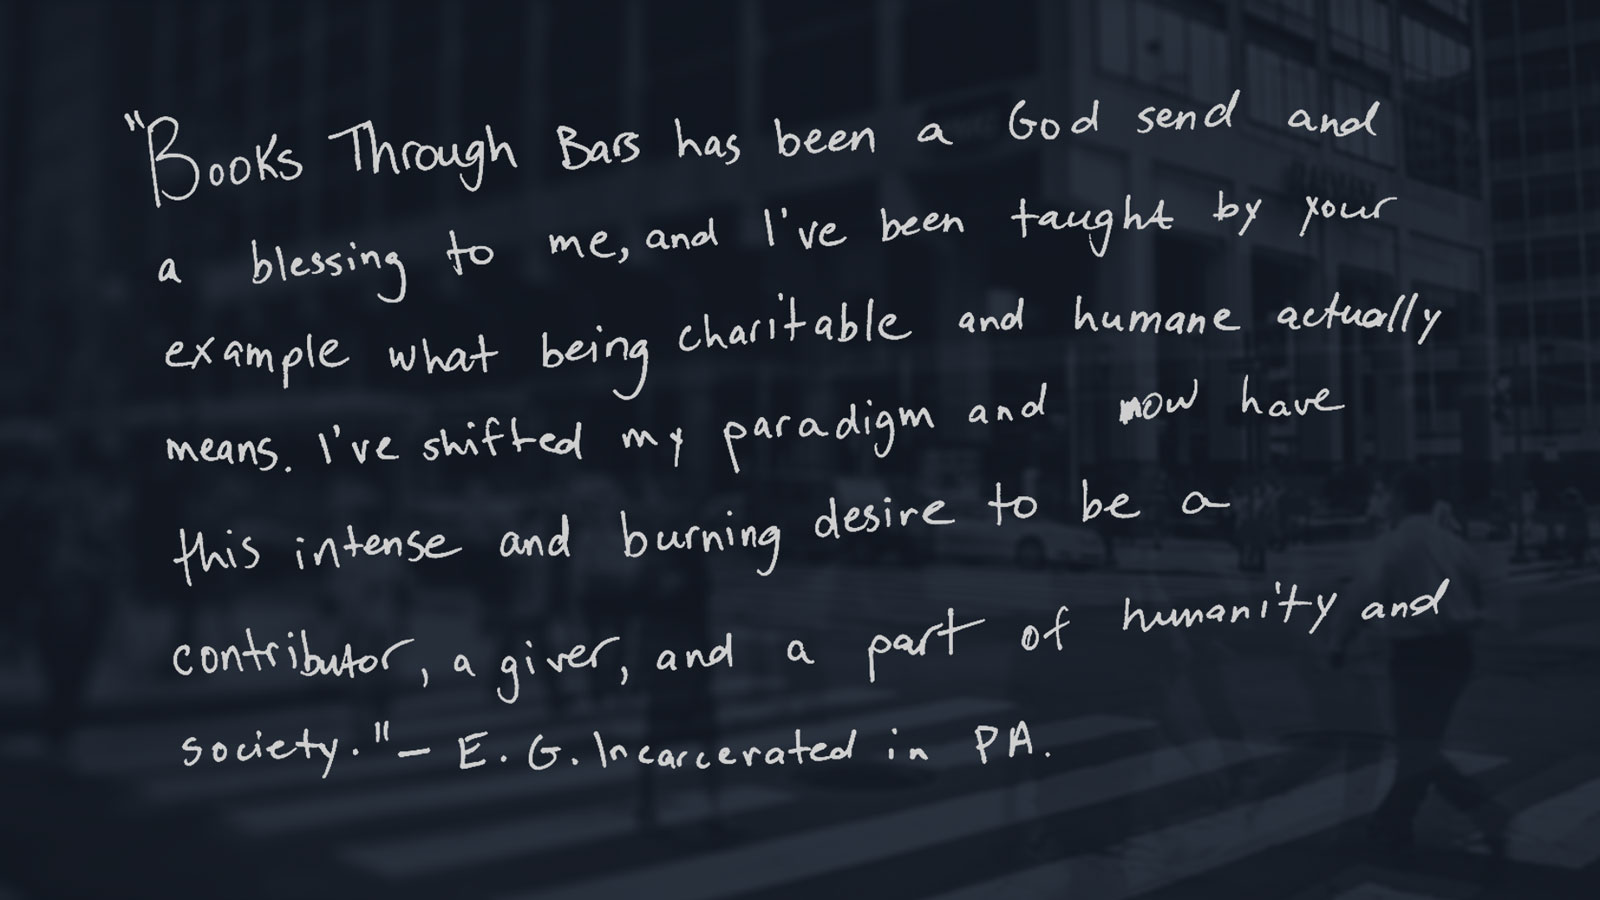 "Books Through Bars has been a God send and
a blessing to me, and I've been taught by your
example what being charitable and humane actually
means. I've shifted my paradigm and now have
this intense and burning desire to be a
contributor, a giver, and a part of humanity and
society." – E. G. Incarcerated in PA.